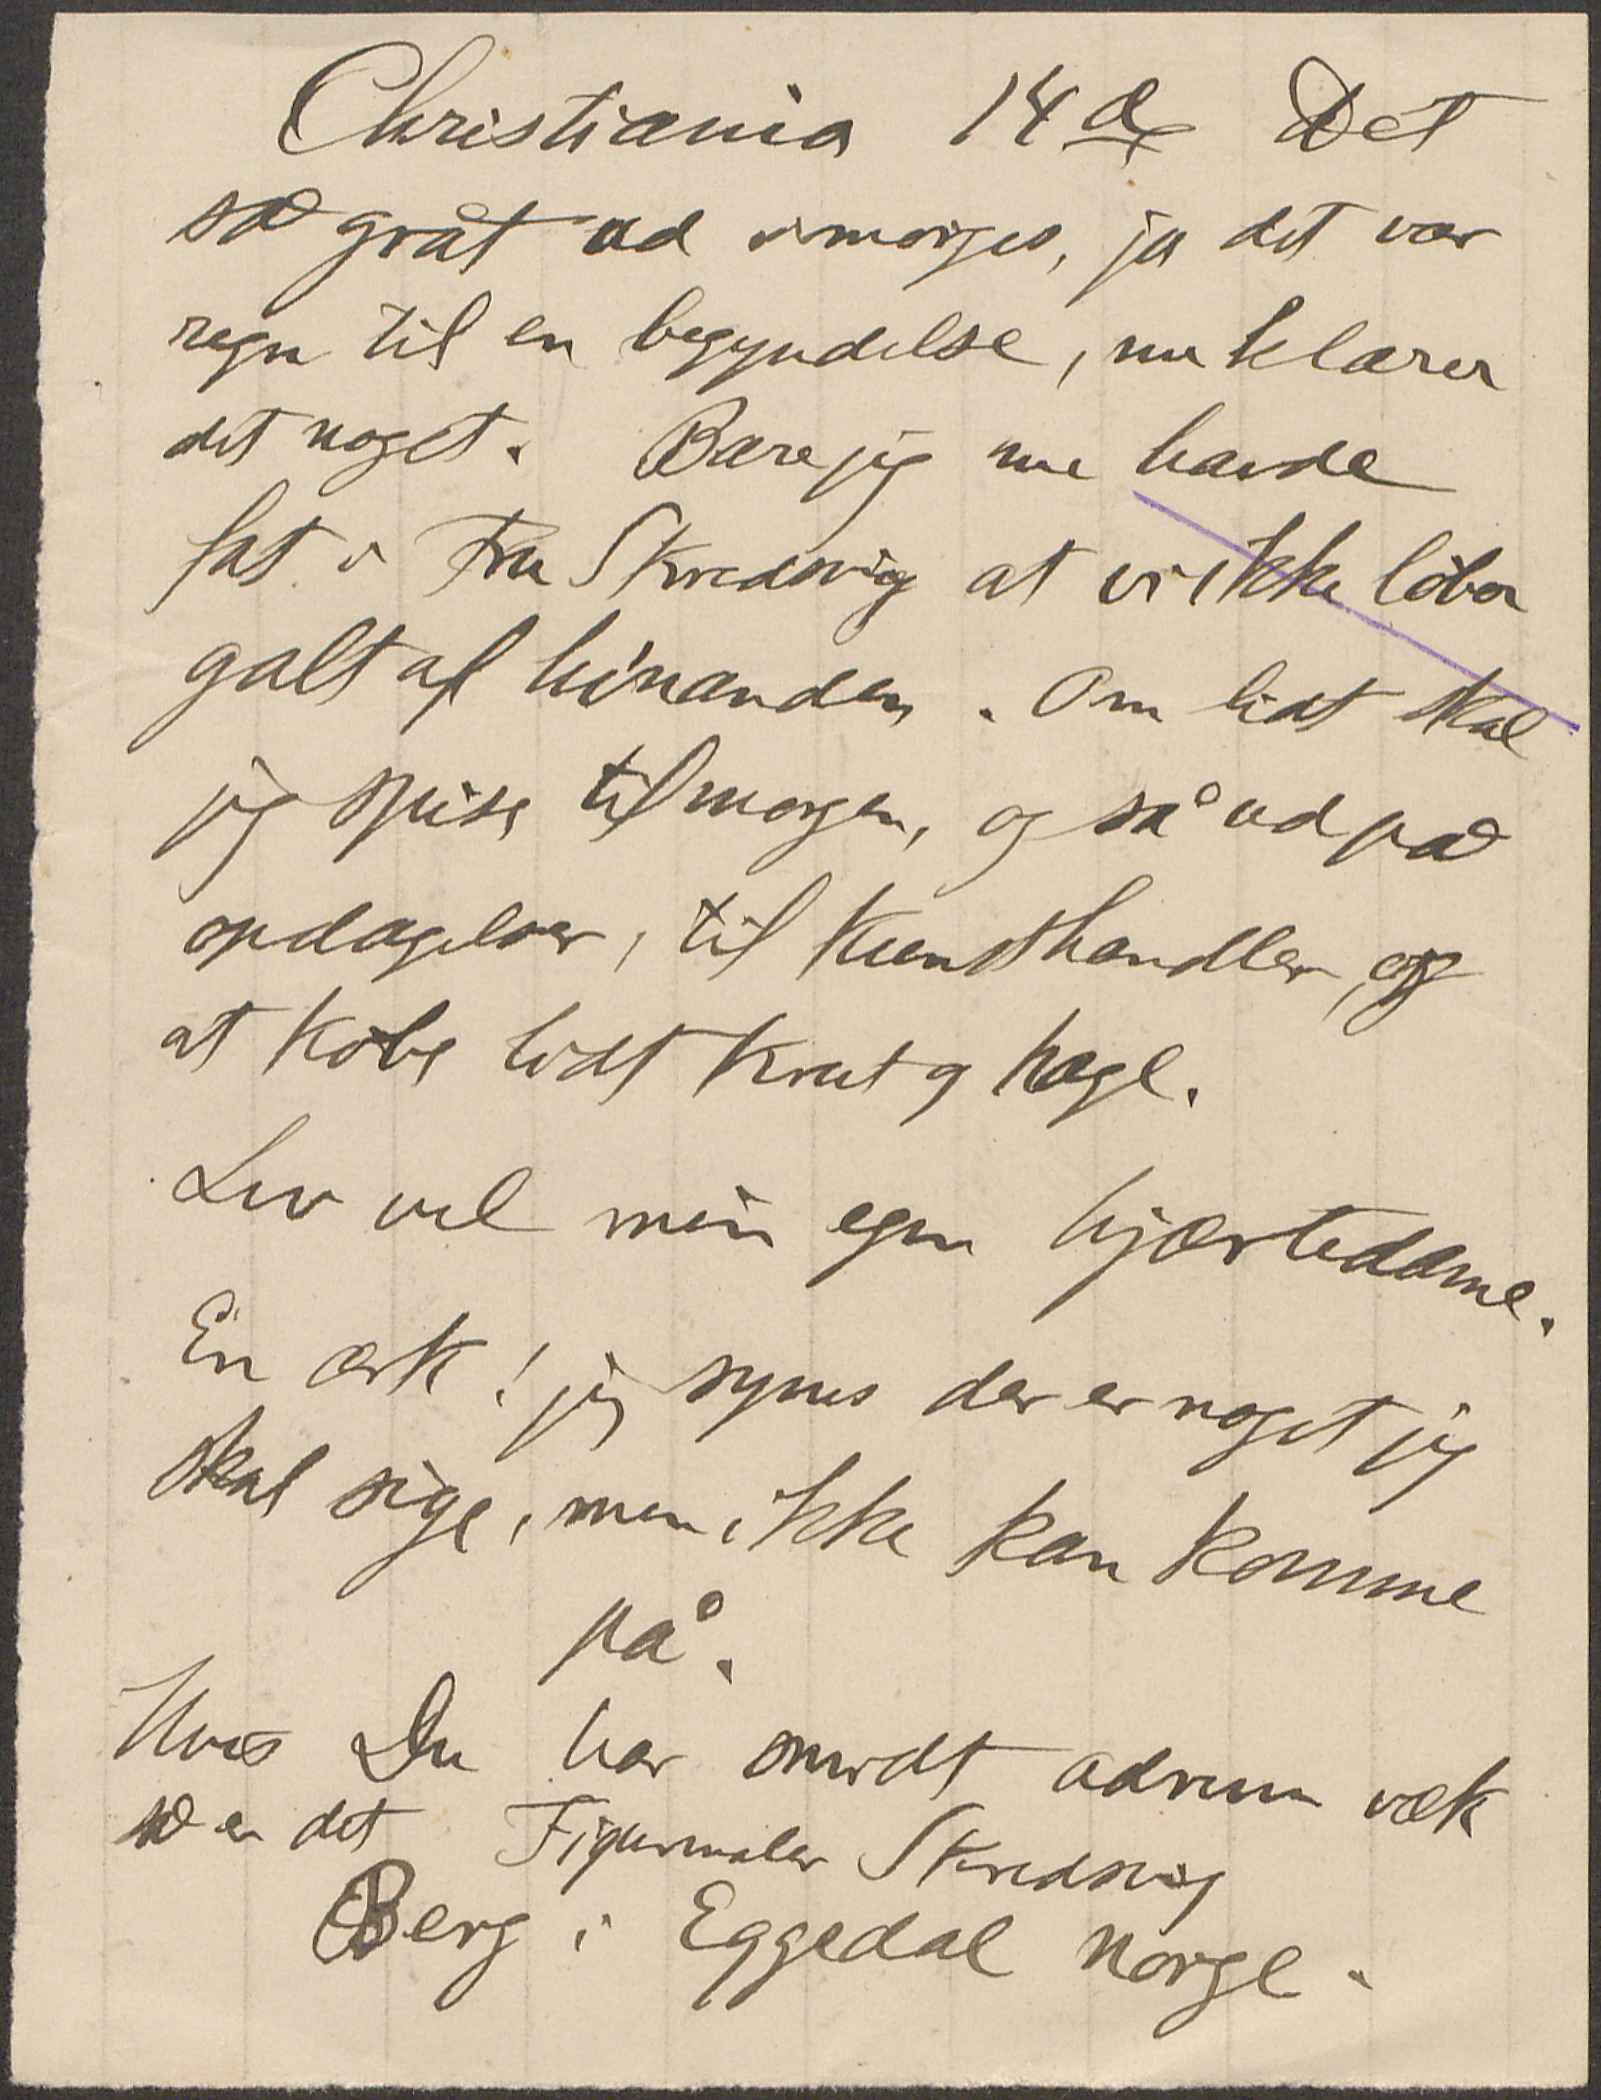 Christiania 14de Det
så gråt ud imorges, ja det var
regn til en begyndelse, nu klarer
det noget. Bare jeg nu havde
fat i Fru Skredsvig at vi ikke løber
galt af hinanden. Om lidt skal
jeg spise til morgen, og så ud på
opdagelser, til Kunsthandler, og
at købe lidt Krut og hagl.
Lev vel min egen hjærtedame.
En ærk! jeg synes der er noget jeg
skal sige, men ikke kan komme
på.
Hvis Du har smidt adressen væk
så er det Figurmaler Skredsvig
Berg i Eggedal Norge.